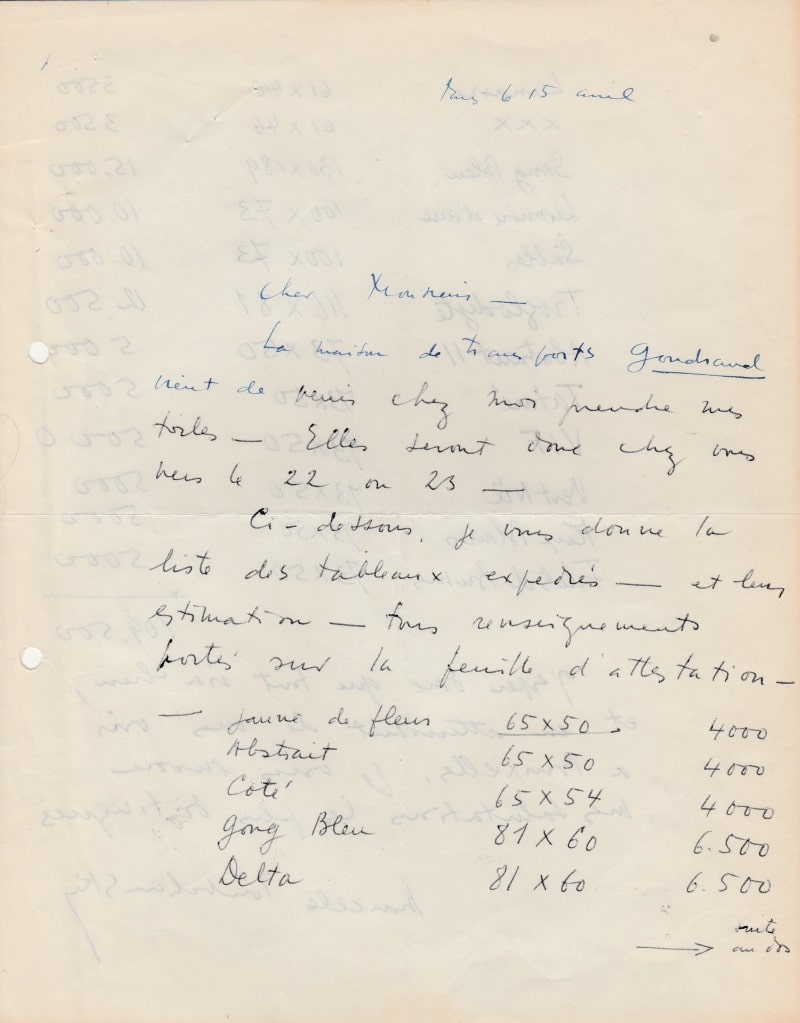 Paris 6 15 avril
Cher Monsieur —
La maison de transports Gondrand
vient de venir chez moi prendre mes
toiles — Elles seront donc chez vous
vers le 22 ou 23 —
Ci-dessous, je vous donne la
liste des tableaux expediés — et leur
estimation — tous renseignements
portés sur la feuille d'attestation —
— jaune de fleurs 65 x 50 4000
Abstrait 65 x 50 4000
Coté 65 x 54 4000
Gong Bleu 81 x 60 6.500
Delta 81 x 60 6.500
suite
→ au dos